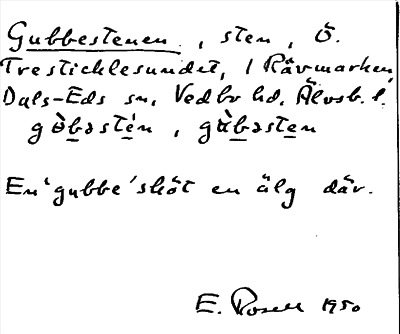 Gubbestenen , sten, Ö.
Trestickle­sundet, i Rävmarken,
Dals-Eds sn, Vedbo hd, Älvsb. l.
gòbəstén , gùbəsten
En 'gubbe' sköt en älg där.
E. Rosell 1950